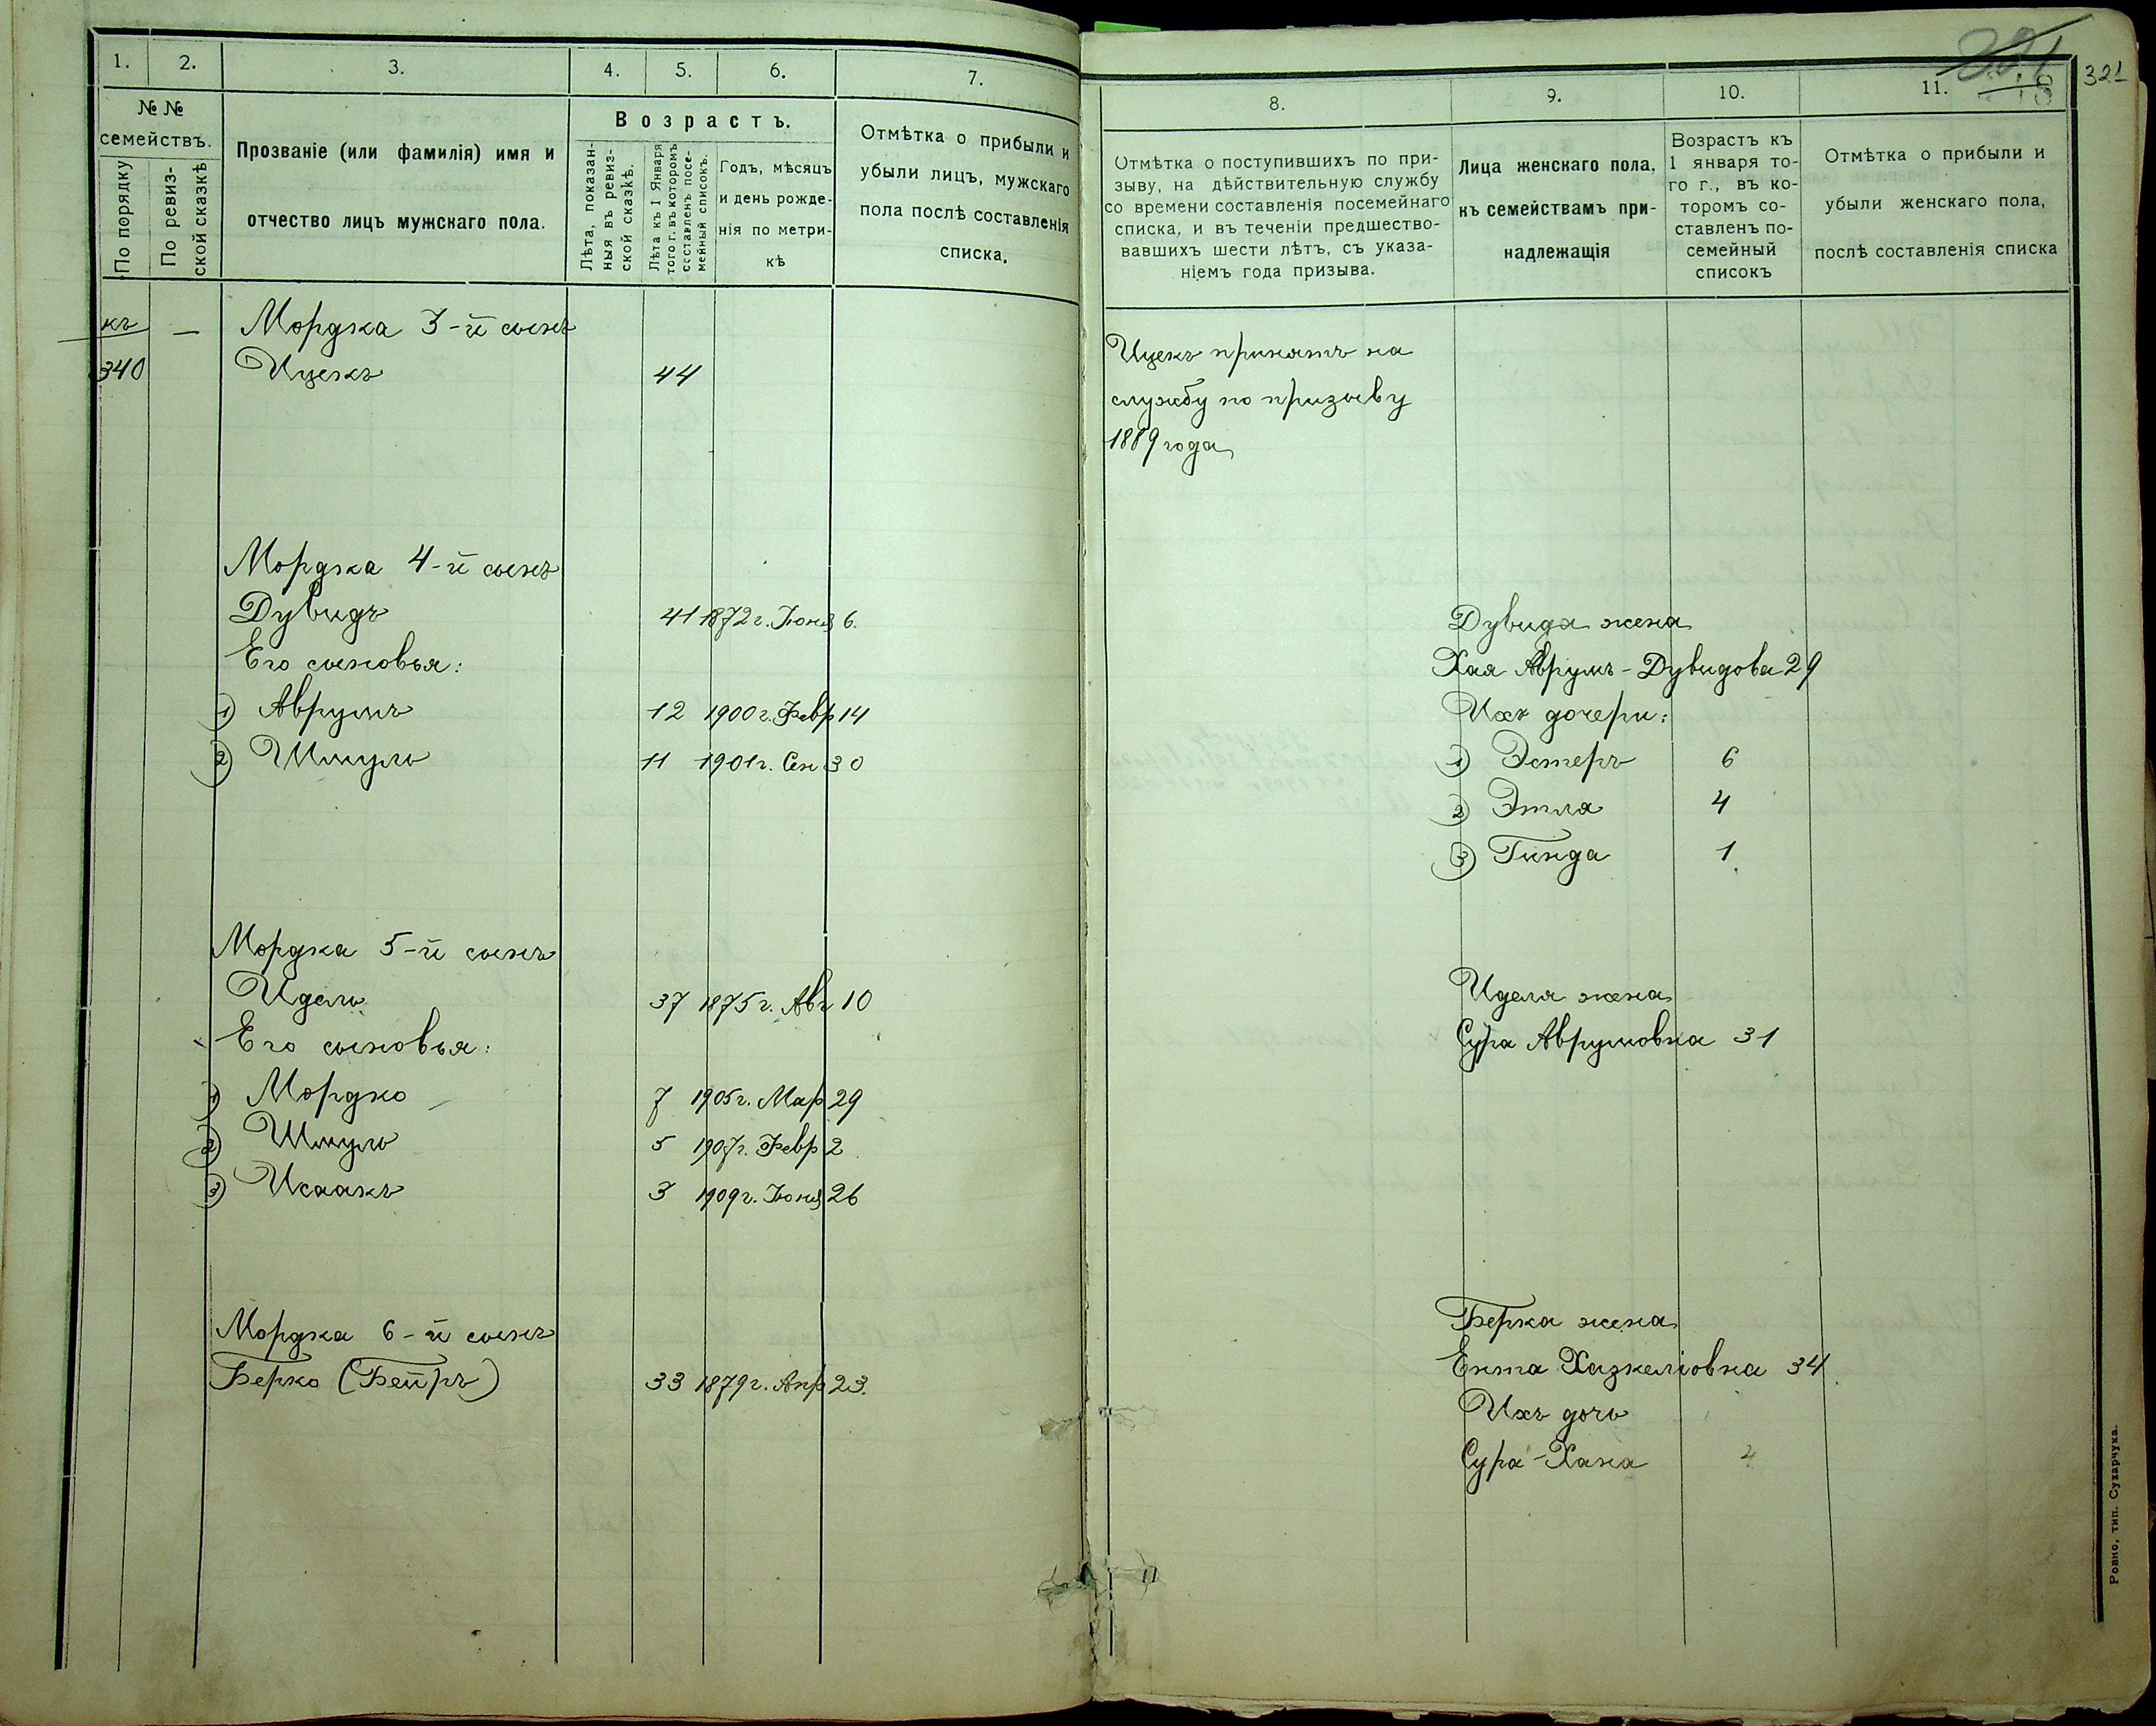 1.
2.
3.
4.
5.
6.
7.
№ №
семействъ.
По порядку
По ревиз-
ской сказкѣ
Прозваніе (или фамилія) имя и
отчество лицъ мужскаго пола.
Возрастъ.
Лѣта, показан-
ныя въ ревиз-
ской сказкѣ.
Лѣта къ 1 Января
того г. въ которомъ
составленъ посе-
мейный списокъ.
Годъ, мѣсяцъ
и день рожде-
нія по метри-
кѣ
Отмѣтка о прибыли и
убыли лицъ, мужскаго
пола послѣ составленія
списка.
къ — Мордка 3-й сынъ
340 Ицекъ 44
Мордка 4-й сынъ
Дувидъ 41 1872 г. Іюня 6.
Его сыновья:
1) Аврумъ 12 1900 г. Февр 14
2) Шмуль 11 1901 г. Сен 30
Мордка 5-й сынъ
Идель 37 1875 г. Авг 10
Его сыновья:
1) Мордко 7 1905 г. Мар 29
2) Шмуль 5 1907 г. Февр 2
3) Исаакъ 3 1909 г. Іюня 26
Мордка 6-й сынъ
Берко (Бейръ) 33 1879 г. Апр 23.
321
8.
9.
10.
11.
Отмѣтка о поступившихъ по при-
зыву, на дѣйствительную службу
со времени составленія посемейнаго
списка, и въ теченіи предшество-
вавшихъ шести лѣтъ, съ указа-
ніемъ года призыва.
Лица женскаго пола,
къ семействамъ при-
надлежащія
Возрастъ къ
1 января то-
го г., въ ко-
торомъ со-
ставленъ по-
семейный
списокъ
Отмѣтка о прибыли и
убыли женскаго пола,
послѣ составленія списка
Ицекъ принятъ на
службу по призыву
1889 года
Дувида жена
Хая Аврумъ-Дувидова 29
Ихъ дочери:
1) Эстеръ 6
2) Этля 4
3) Гинда 1
Иделя жена
Сура Аврумовна 31
Берка жена
Ента Хазкеліовна 34
Ихъ дочь
Сура-Хана 4
Ровно, тип. Сухарчука.